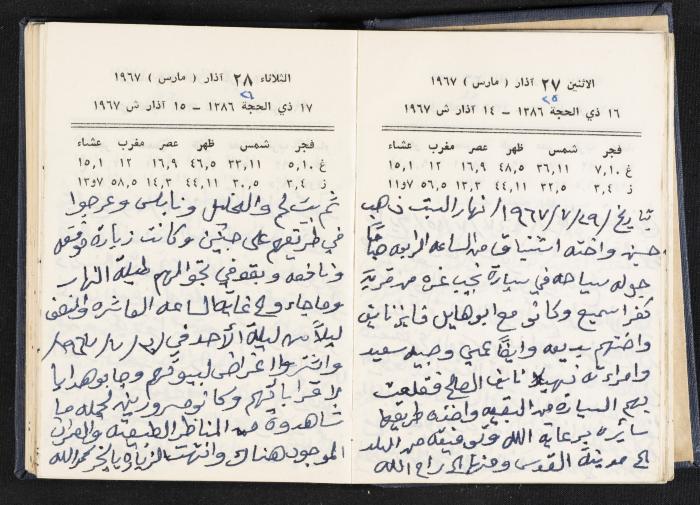 الاثنين ٢٧ آذار ( مارس ) ١٩٦٧
٢٥
١٦ ذي الحجة ١٣٨٦ – ١٤ آذار ش ١٩٦٧
فجر شمس ظهر عصر مغرب عشاء
غ ٧,١٠ ٣٦,١١ ٤٨,٥ ١٦,٩ ١٢ ١٥,١
ز ٣,٤ ٣٢,٥ ٤٤,١١ ١٣,٣ ٥٦,٥ ١١و٧
بتاريخ /٢٩/ ٧/ ١٩٦٧/ نهار السبت ذهب
حسن واخته اشتياق من الساعه الرابعه صباحًا
جوله سياحه في سيارة جيب غزه من قرية
كفر اسميع وكانو مع ابو هايل فايز نايف
واختهم بديعه وايضًا عمي وحيد سعيد
وامراءته نهيلا نايف الصالح فقلعت
بهم السيارة من البقيعه واخذه طريقها
سائره برعاية الله وتوفيقه من البلد
الى مدينة القدس ومنها الى رام الله
الثلاثاء ٢٨ آذار ( مارس ) ١٩٦٧
٢٦
١٧ ذي الحجة ١٣٨٦ – ١٥ آذار ش ١٩٦٧
فجر شمس ظهر عصر مغرب عشاء
غ ٥,١٠ ٣٣,١١ ٤٦,٥ ١٦,٩ ١٢ ١٥,١
ز ٣,٤ ٣٠,٥ ٤٤,١١ ١٤,٣ ٥٨,٥ ١٣و٧
ثم بيت لحم والخليل ونابلس وعرجوا
في طريقهم على جنين وكانت زيارة موفقه
ونافعه وبقو في تجوالهم طيلة النهار
وما جاءو الى غاية الساعه العاشره والنصف
ليلاً من ليلة الأحد في
واشتروا اغراض لبيوتهم وجابو هدايا
لاقرابائهم وكانو مسرورين لجمله ما
شاهدوه من المناظر الطبيعيه والعمران
الموجود هناك وانتهت الزيارة بالخير